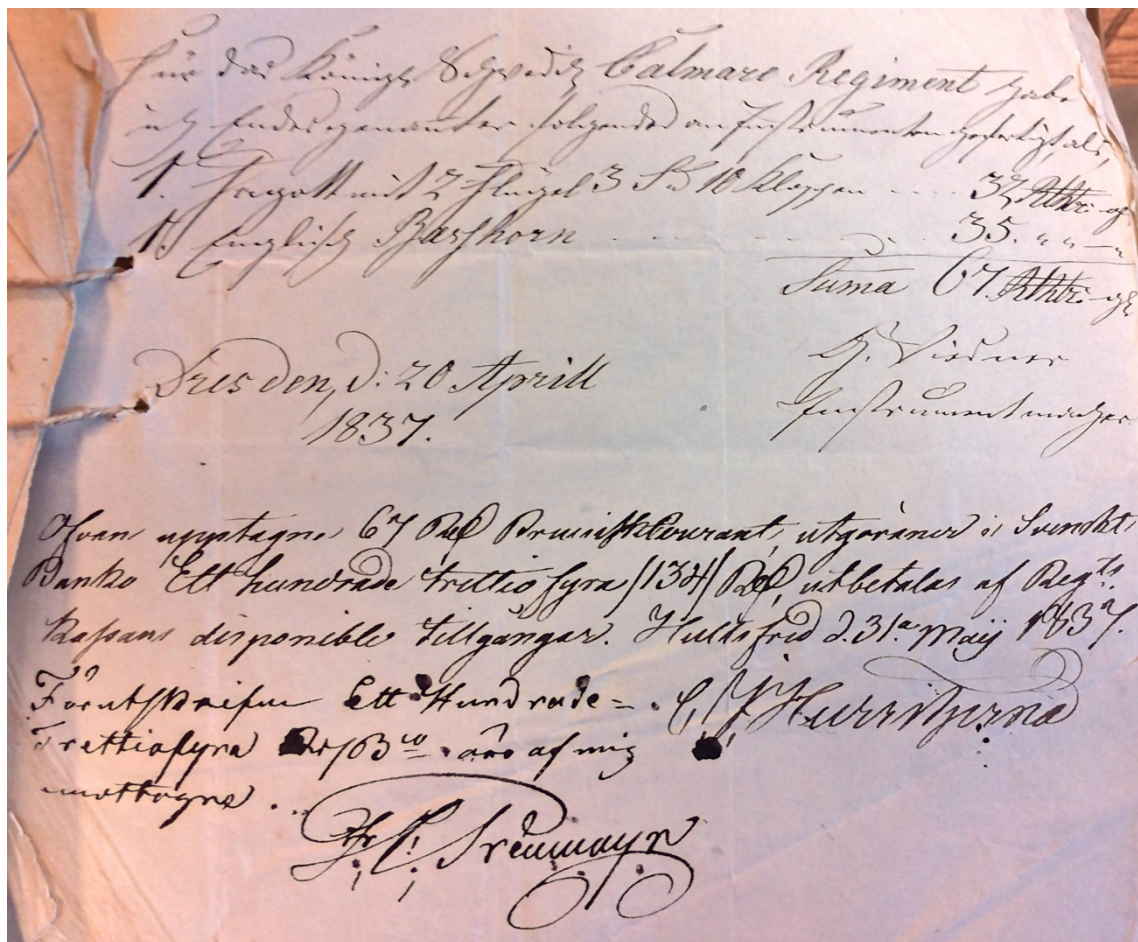 Für das Königl Schwedisch Calmare Regiment habe
ich Endesgenanter folgendes an Instrumenten gefertigt, als,
1. Fagott mit 2 Flügel 3 St 10 Klappen ..... 32 Rthlr
1. Englisch Basshorn ........... 35. " " — "
Suma 67. Rthlr
Dresden, d: 20 Aprill
1837.
Instrumentmacher
Ofvan upptagne 67 Rd Preuisk Courant, utgörande i Svenskt
Banko Ett hundrade trettio fyra /134/ Rd, utbetalas af Regts
Kassans disponible tillgångar. Hultsfred d. 31a Maij 1837.
Förutskrifne Ett Hundrade =
Trettiofyra Rd B co äro af mig
emottagne ...